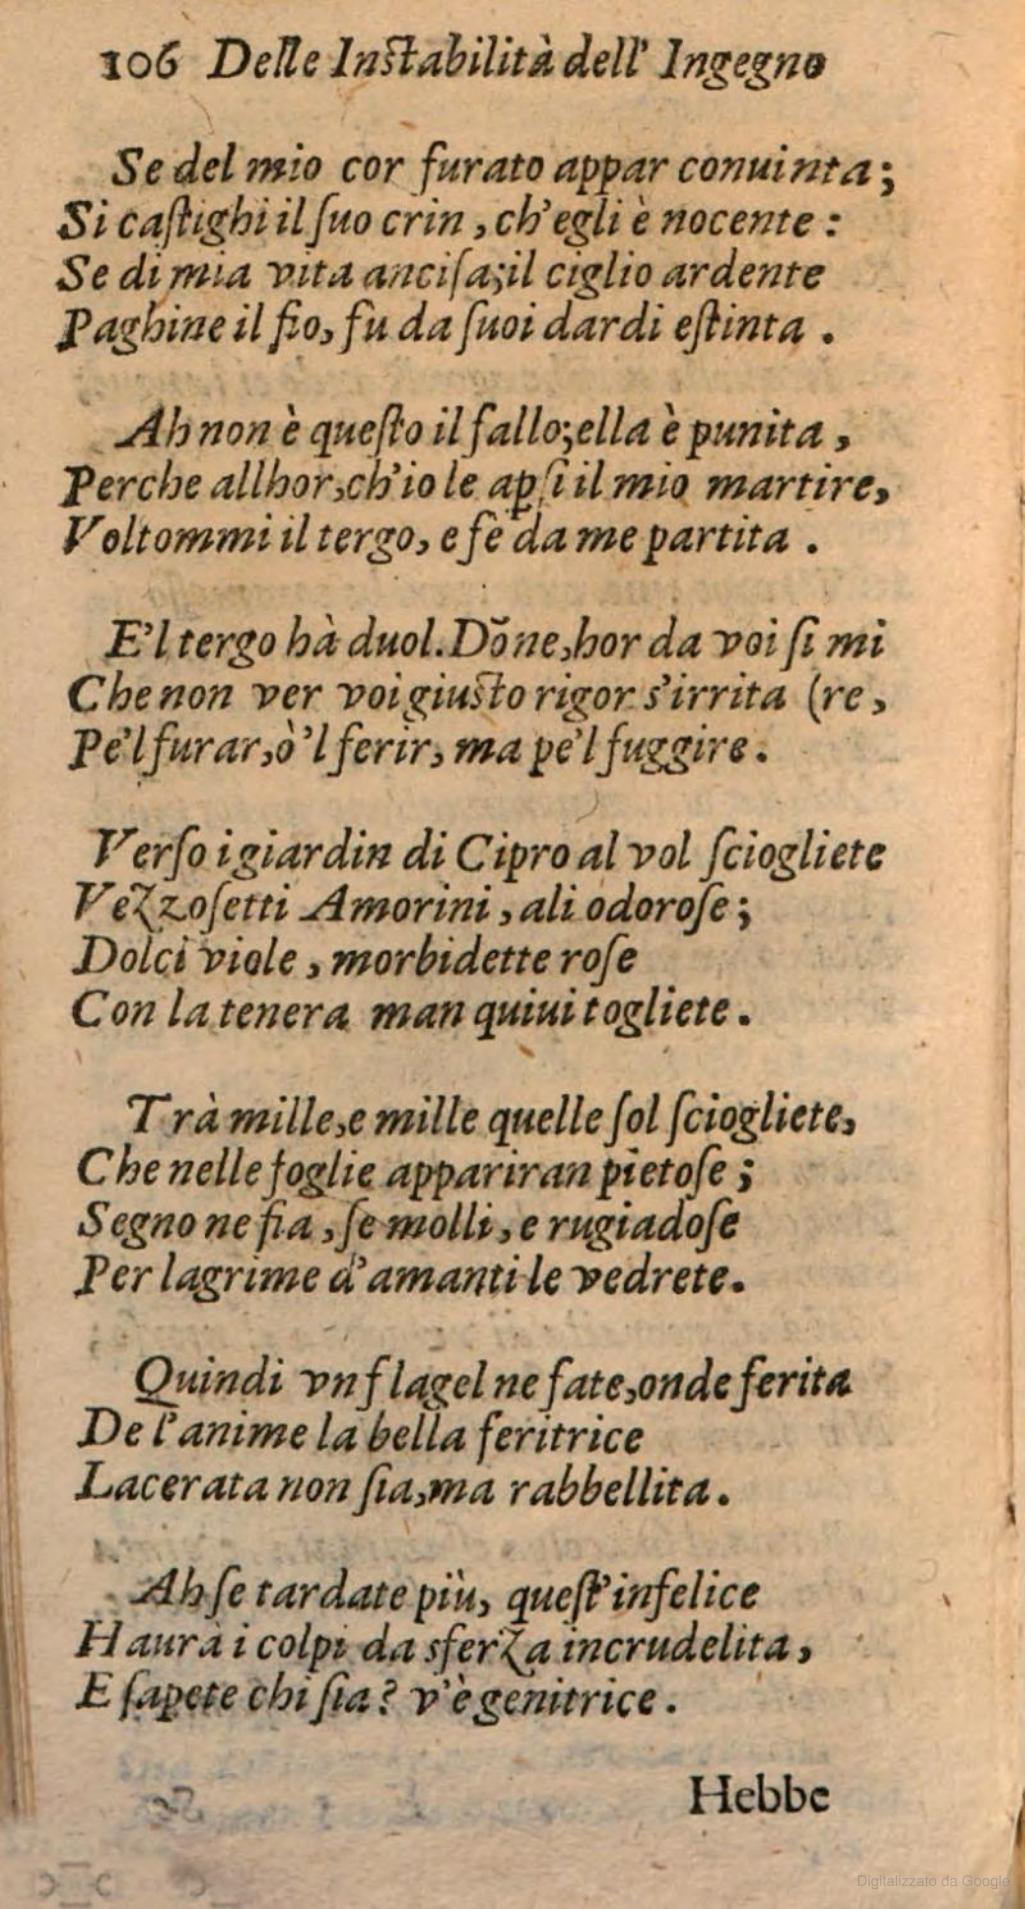 106 Delle Instabilità dell' Ingegno
Se del mio cor furato appar conuinta;
Si castighi il suo crin, ch'egli è nocente:
Se di mia vita ancisa; il ciglio ardente
Paghine il fio, fu da suoi dardi estinta.
Ah non è questo il fallo; ella è punita,
Perche allhor, ch'io le apsi il mio martire,
Voltommi il tergo, e fè da me partita.
E'l tergo hà duol. Dōne, hor da voi si mi
Che non ver voi giusto rigor s'irrita (re,
Pe'l furar, ò'l ferir, ma pe'l fuggire.
Verso i giardin di Cipro al vol sciogliete
Vezzosetti Amorini, ali odorose;
Dolci viole, morbidette rose
Con la tenera man quiui togliete.
Trà mille, e mille quelle sol sciogliete,
Che nelle foglie appariran pietose;
Segno ne fia, se molli, e rugiadose
Per lagrime d'amanti le vedrete.
Quindi vn flagel ne fate, onde ferita
De l'anime la bella feritrice
Lacerata non sia, ma rabbellita.
Ah se tardate più, quest'infelice
Haurà i colpi da sferza incrudelita,
E sapete chi sia? v'è genitrice.
Hebbe
Digitalizzato da Google